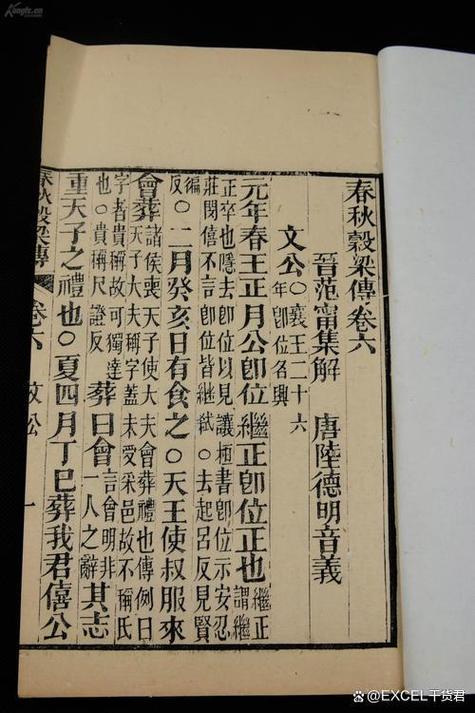 春秋穀梁傳卷六
晉范甯集解 唐陸德明音義
文公○襄王二十六
年卽位名興
元年春王正月公卽位繼正卽位正也繼正
謂繼
正卒也隱去卽位以見讓桓書卽位示安忍
莊閔僖不言卽位皆繼弒○去起呂反見賢
徧
反○二月癸亥日有食之○天王使叔服來
會葬諸侯喪天子使大夫會葬禮也傳例曰
天子大夫稱字蓋未受采邑故不稱氏
字者貴稱故可獨達
也○貴稱尺證反葬曰會言會明非
一人之辭其志
重天子之禮也○夏四月丁巳葬我君僖公
春秋穀梁傳 卷六 文公 一
Kongfz.cn
@EXCEL干货君